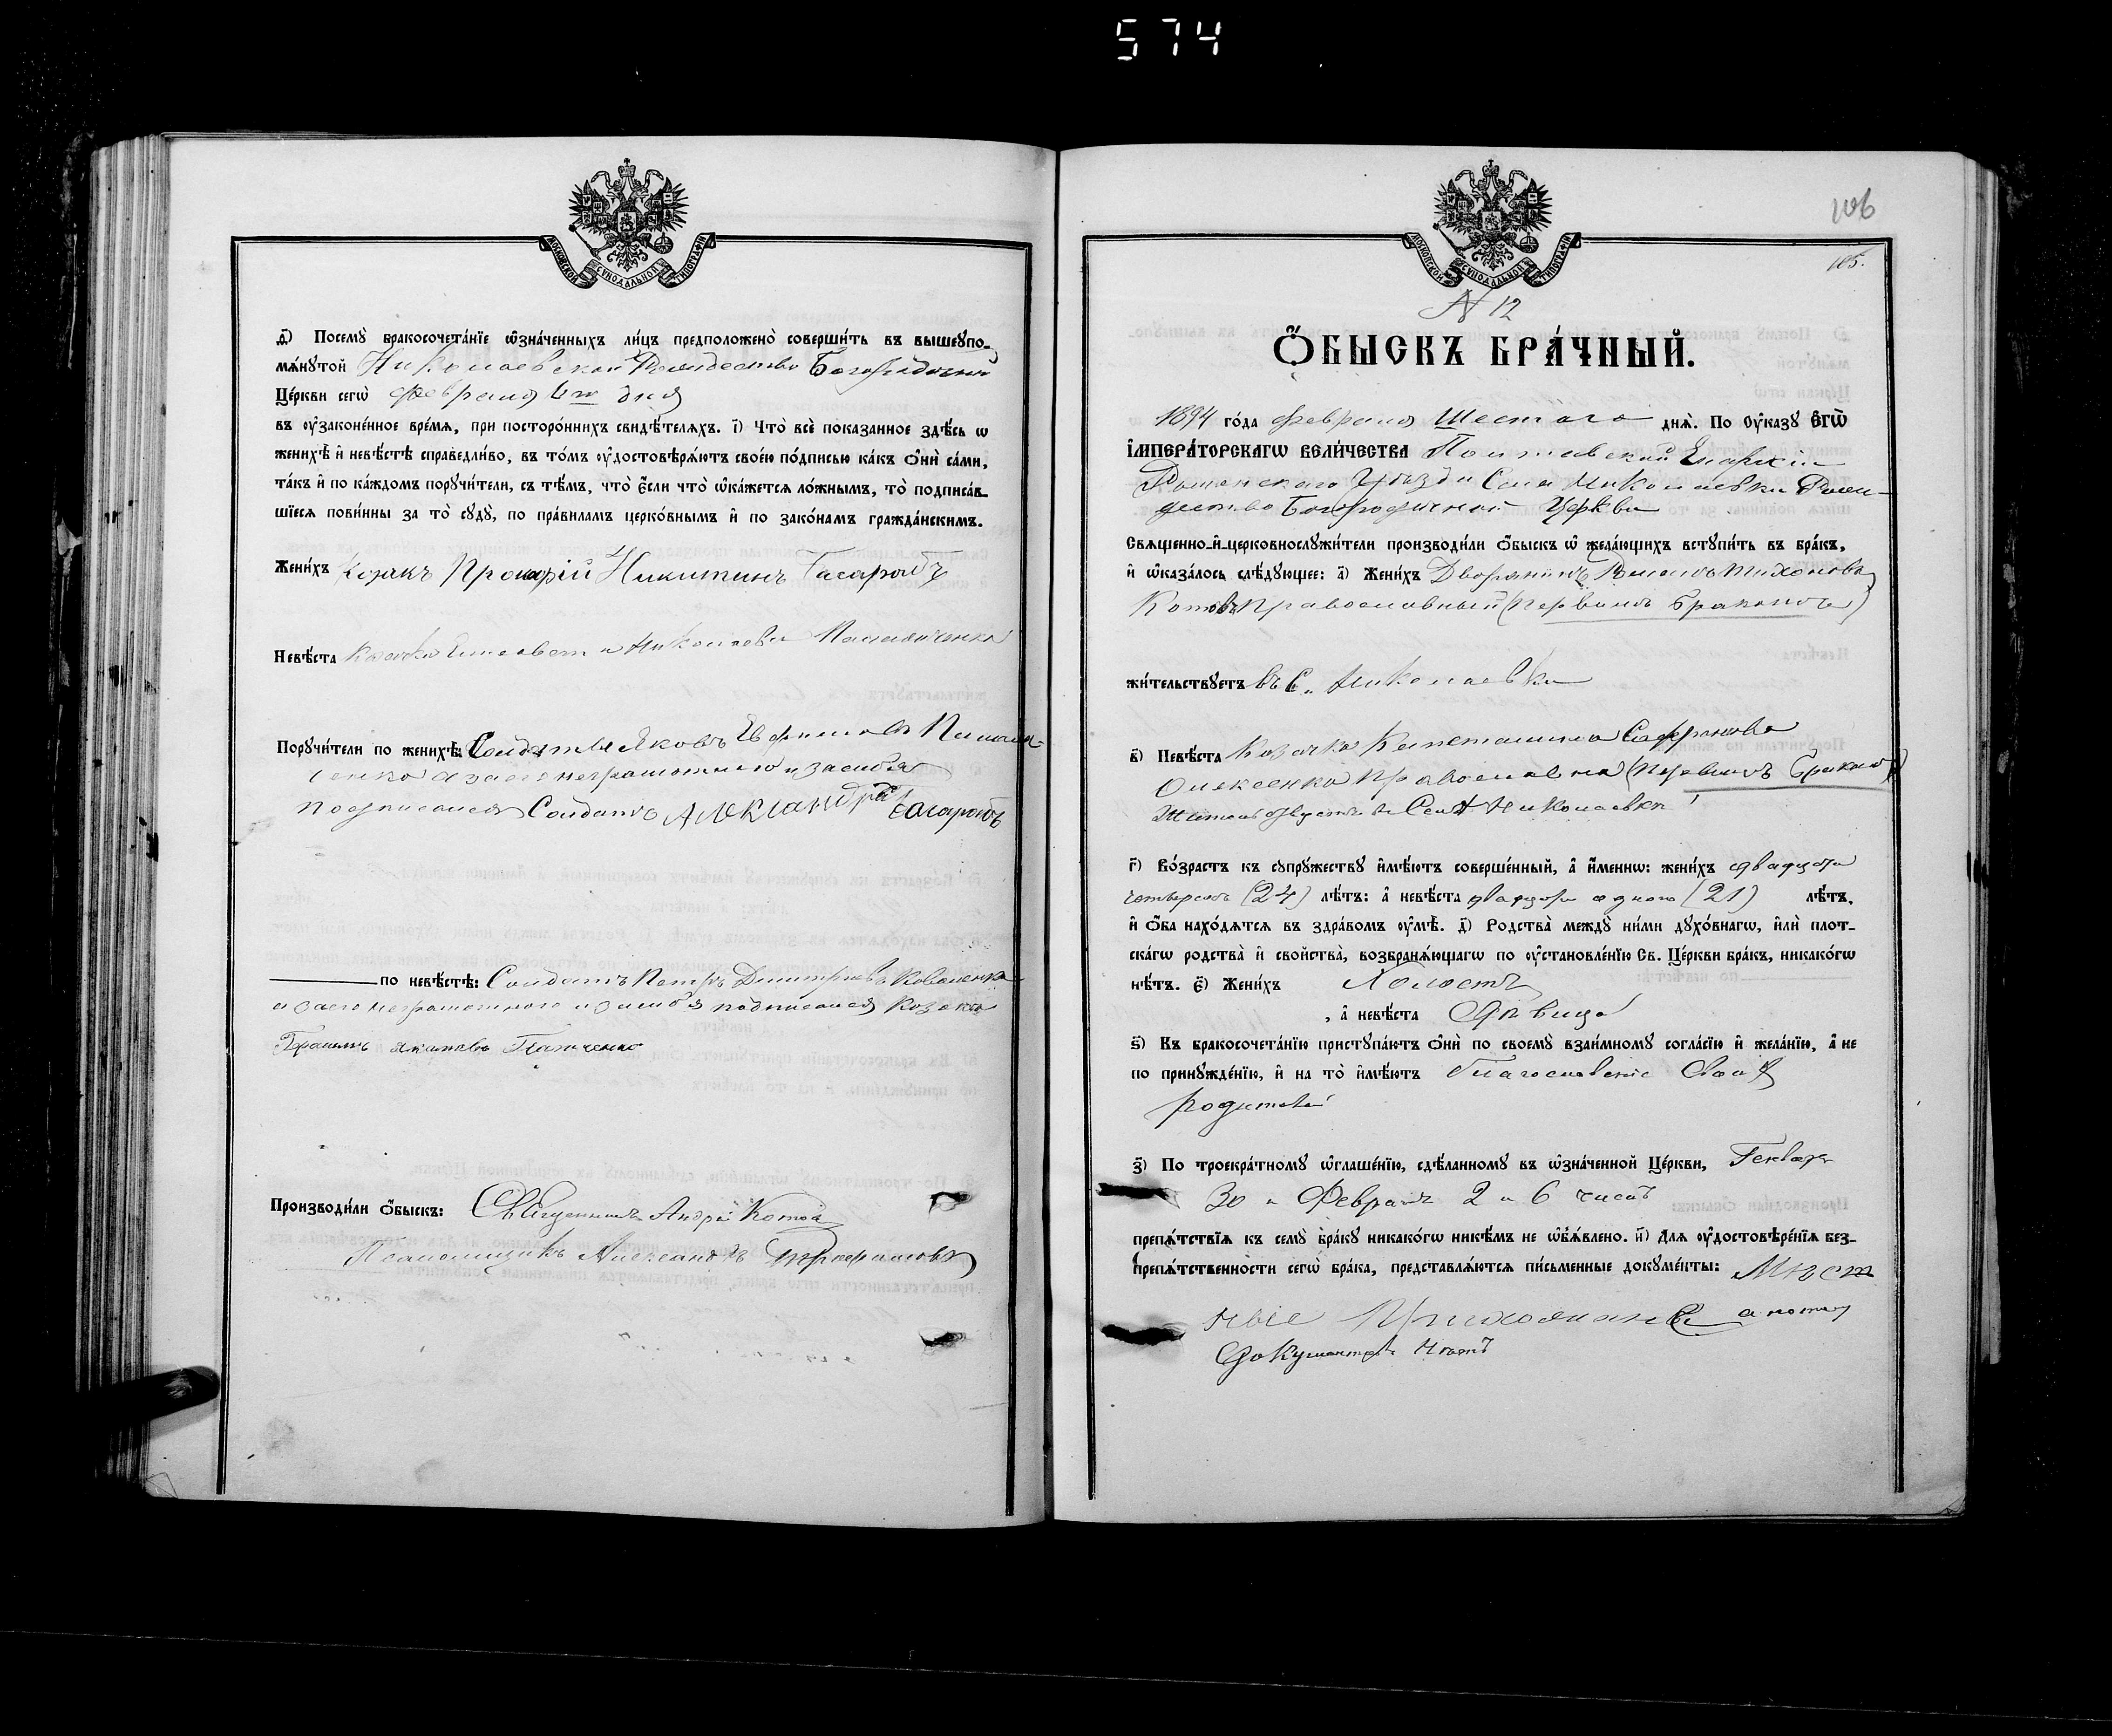 574
МОСКОВСКОЙ СУНОДАЛЬНОЙ ТИПОГРАФІИ
д҃) Посемꙋ̀ бракосочета́нїе ѡ҆зна́ченныхъ ли́цъ предположено̀ соверши́ть въ вышеꙋпо-
мѧ́нꙋтой Николаевской Рождество Богородичной
Це́ркви сегѡ̀ февраля 6го дня
въ ᲂу҆зако́ненное вре́мѧ, при посторо́ннихъ свидѣ́телѧхъ. і҃) Что̀ всѐ показанное здѣ́сь ѡ
женихѣ̀ и҆ невѣ́стѣ справедли́во, въ то́мъ ᲂу҆достовѣрѧ́ютъ свое́ю по́дписью ка́къ ѻ҆нѝ са́ми,
та́къ и҆ по ка́ждомъ порꙋчи́тели, съ тѣ́мъ, что̀ є҆́сли что̀ ѡ҆ка́жетсѧ ло́жнымъ, то̀ подписа́в-
шїесѧ пови́нны за то̀ сꙋдꙋ̀, по пра́виламъ церко́внымъ и҆ по зако́намъ гражда́нскимъ.
Жени́хъ Козакъ Прокофій Никитинъ
Невѣ́ста Козачка Елисавета Николаева
Порꙋчи́тели по женихѣ̀: Солдатъ Яковъ Евфимовъ
а за его неграмотного и за себя
подписался Солдатъ Александръ
по невѣ́стѣ: Солдатъ Петръ Димитріевъ Коваленко
а за его неграмотного и за себя подписался Козакъ
Производи́ли ѻ҆́быскъ: Священникъ Андрей Котов
Псаломщикъ Александръ
106
105.
МОСКОВСКОЙ СУНОДАЛЬНОЙ ТИПОГРАФІИ
N 12
Ѻ҆́БЫСКЪ БРА́ЧНЫЙ.
1894 го́да февраля Шестаго днѧ̀. По Оу҆ка́зꙋ Є҆ГѠ̀
І҆МПЕРА́ТОРСКАГѠ ВЕЛИ́ЧЕСТВА Полтавской Епархіи
Роменскаго Уѣзда Села Николаевки Рож-
дество Богородичной Церкви
Свѧщенно-и҆-церковнослꙋжи́тели производи́ли ѻ҆́быскъ ѡ҆ жела́ющихъ встꙋпи́ть въ бра́къ,
и҆ ѡ҆каза́лось слѣ́дꙋющее: а҃) Жени́хъ Дворянинъ Романъ Тихоновъ
Котовъ Православный (Первымъ бракомъ)
жи́тельствꙋетъ въ С. Николаевки
в҃) Невѣ́ста Козачка Капетолина Сафронова
Олексенко Православна (Первымъ бракомъ)
Жительствуетъ въ Селѣ Николаевки
г҃) Во́зрастъ къ сꙋпрꙋ́жествꙋ и҆мѣ́ютъ соверше́нный, а҆ и҆́менно: жени́хъ двадцати
четырехъ (24) лѣ́тъ: а҆ невѣ́ста двадцати одного (21) лѣ́тъ.
и҆ ѻ҆́ба нахо́дѧтсѧ въ здра́вомъ ᲂу҆мѣ̀. д҃) Родства̀ междꙋ̀ ни́ми дꙋхо́внагѡ, и҆лѝ плот-
ска́гѡ родства̀ и҆ сво́йства, возбранѧ́ющагѡ по ᲂу҆становле́нїю Св. Це́ркви бра́къ, никако́гѡ
нѣ́тъ. є҃) Жени́хъ Холостъ
, а҆ невѣ́ста Дѣвица
ѕ҃) Къ бракосочета́нїю пристꙋпа́ютъ ѻ҆нѝ по своемꙋ̀ взаи́мномꙋ согла́сїю и҆ жела́нїю, а҆ не
по принꙋжде́нїю, и҆ на то̀ и҆мѣ́ютъ Благословеніе Своихъ
родителей
з҃) По троекра́тномꙋ ѡ҆глаше́нїю, сдѣ́ланномꙋ въ ѡ҆зна́ченной Це́ркви, Генваря
30 и Февраля 2 и 6 чиселъ
препѧ́тствїѧ къ семꙋ̀ бра́кꙋ никако́гѡ никѣ́мъ не ѡ҆б̾ѧ́влено. и҃) Длѧ ᲂу҆достовѣре́нїѧ без-
препѧ́тственности сегѡ̀ бра́ка, представлѧ́ютсѧ пи́сьменные докꙋме́нты: Мѣст
ные Прихожане а потому
документовъ нѣтъ